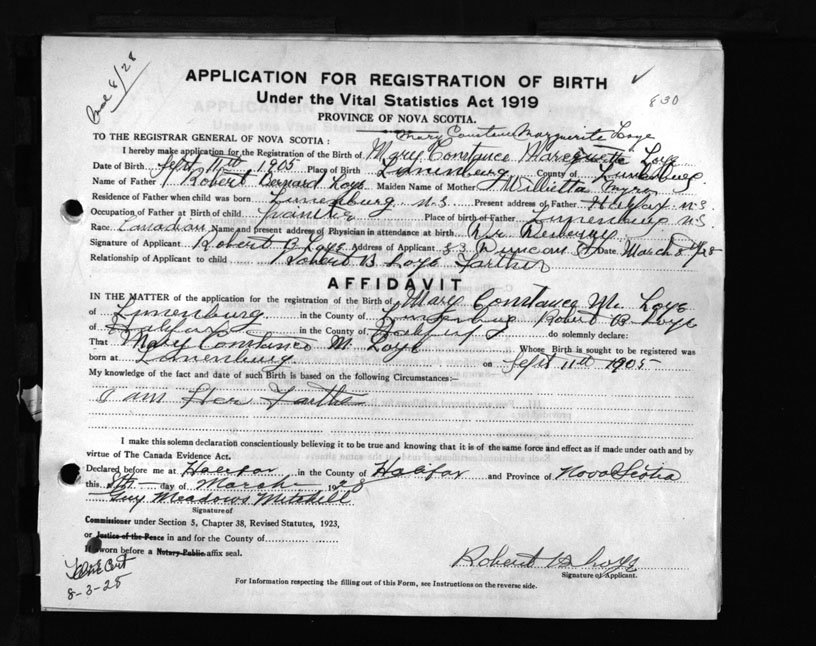 8/28
APPLICATION FOR REGISTRATION OF BIRTH
Under the Vital Statistics Act 1919
PROVINCE OF NOVA SCOTIA.
830
Mary Constance Marguerite Loye
TO THE REGISTRAR GENERAL OF NOVA SCOTIA :
I hereby make application for the Registration of the Birth of Mary Constance Marguerite Loye
Date of Birth Sept 11th 1905 Place of Birth Lunenburg County of Lunenburg
Name of Father Robert Bernard Loye Maiden Name of Mother Willietta
Residence of Father when child was born Lunenburg N.S Present address of Father Halifax N.S
Occupation of Father at Birth of child Place of birth of Father Lunenburg N.S
Race Canadian Name and present address of Physician in attendance at birth Dr
Signature of Applicant Robert B Loye Address of Applicant 53 Duncan St Date March 8/28
Relationship of Applicant to child Robert B Loye Farther
AFFIDAVIT
IN THE MATTER of the application for the registration of the Birth of Mary Constance M. Loye
of Lunenburg in the County of Lunenburg Robert B Loye
of Halifax in the County of Halifax do solemnly declare:
That Mary Constance M. Loye Whose Birth is sought to be registered was
born at Lunenburg on Sept 11th 1905
My knowledge of the fact and date of such Birth is based on the following Circumstances:—
I am Her Farther
I make this solemn declaration conscientiously believing it to be true and knowing that it is of the same force and effect as if made under oath and by
virtue of The Canada Evidence Act.
Declared before me at Halifax in the County of Halifax and Province of Nova Scotia
this 8th day of March 1928
Guy Meadows Mitchell
Signature of
Commissioner under Section 5, Chapter 38, Revised Statutes, 1923,
or Justice of the Peace in and for the County of
If sworn before a Notary Public affix seal.
Robert B Loye
Signature of Applicant.
Cert
8-3-28
For Information respecting the filling out of this Form, see Instructions on the reverse side.